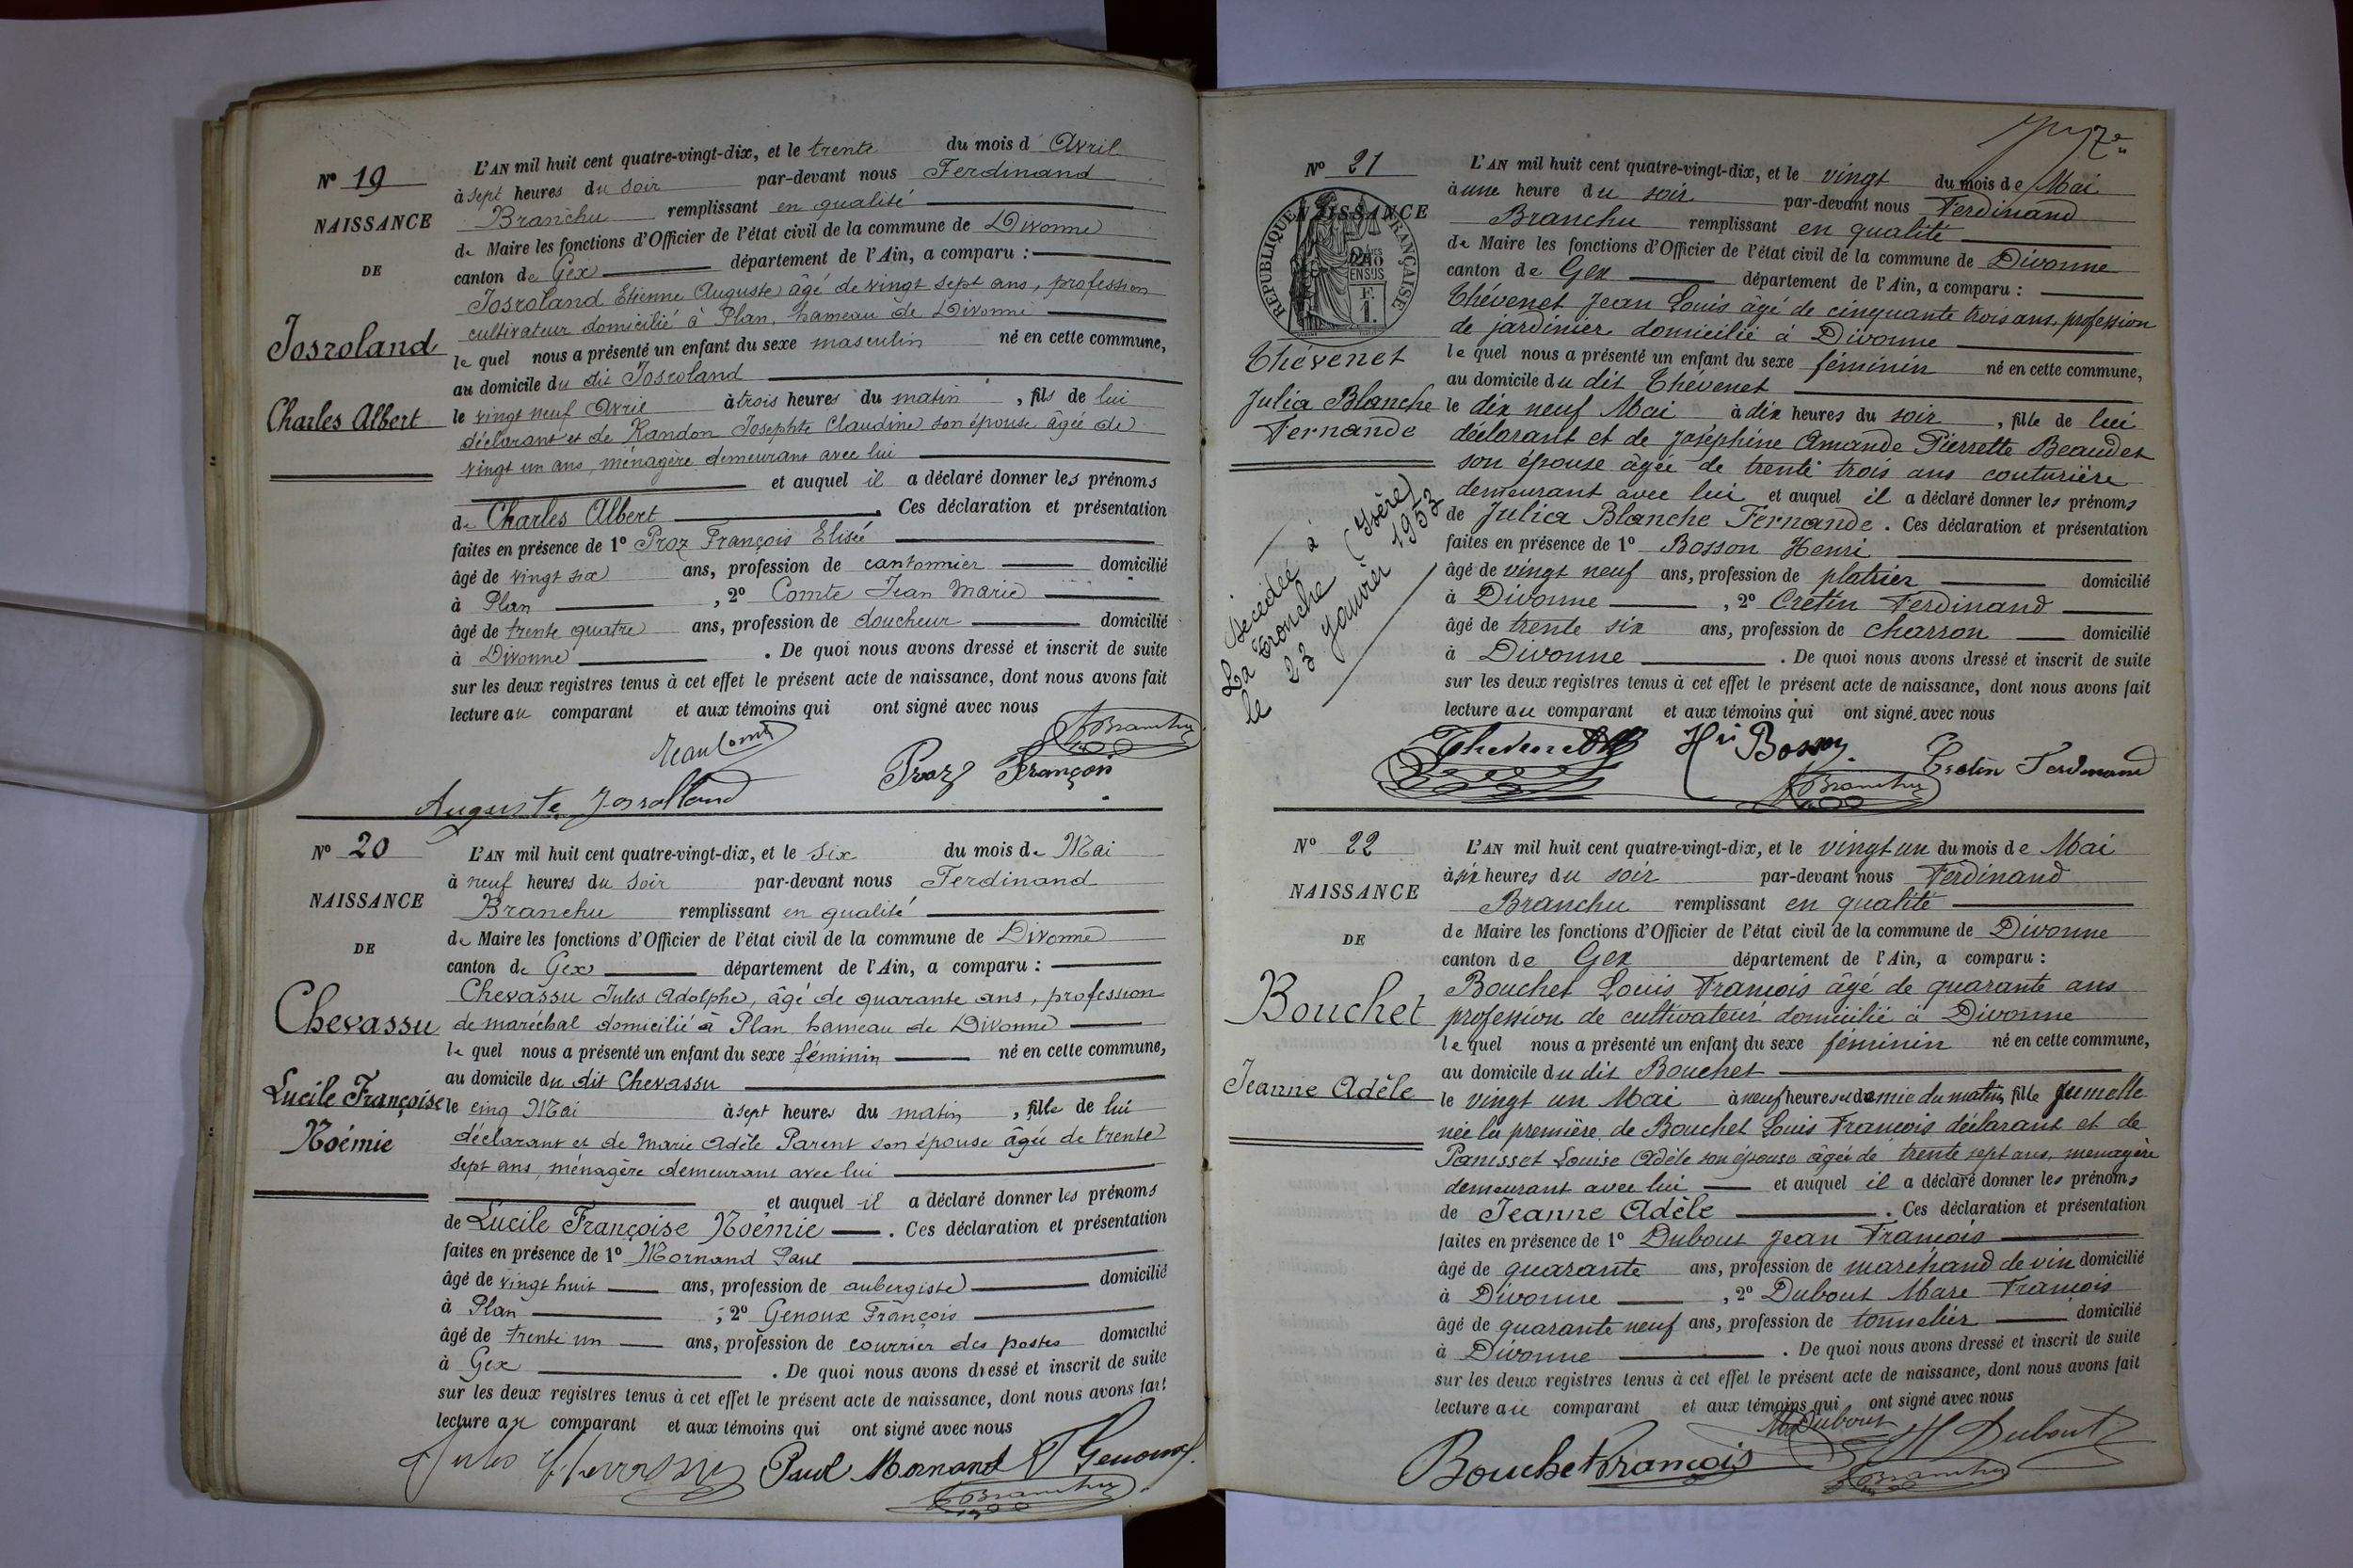 N° 19
NAISSANCE
DE
Josroland
Charles Albert
L'AN mil huit cent quatre-vingt-dix, et le trente du mois d'Avril
à sept heures du soir par-devant nous Ferdinand
Branchu remplissant en qualité
de Maire les fonctions d'Officier de l'état civil de la commune de Divonne
canton de Gex département de l'Ain, a comparu :
Josroland Etienne Auguste âgé de vingt sept ans, profession
cultivateur domicilié à Plan, hameau de Divonne
le quel nous a présenté un enfant du sexe masculin né en cette commune,
au domicile du dit Josroland
le vingt neuf Avril à trois heures du matin, fils de lui
déclarant et de Randon Josephte Claudine son épouse âgée de
vingt un ans, ménagère demeurant avec lui
et auquel il a déclaré donner les prénoms
de Charles Albert. Ces déclaration et présentation
faites en présence de 1° Proz François Elisée
âgé de vingt six ans, profession de cantonnier domicilié
à Plan, 2° Comte Jean Marie
âgé de trente quatre ans, profession de doucheur domicilié
à Divonne. De quoi nous avons dressé et inscrit de suite
sur les deux registres tenus à cet effet le présent acte de naissance, dont nous avons fait
lecture au comparant et aux témoins qui ont signé avec nous
Jean Comte Proz François F Branchu
Auguste Josrolland
N° 20
NAISSANCE
DE
Chevassu
Lucile Françoise
Noémie
L'AN mil huit cent quatre-vingt-dix, et le six du mois de Mai
à neuf heures du soir par-devant nous Ferdinand
Branchu remplissant en qualité
de Maire les fonctions d'Officier de l'état civil de la commune de Divonne
canton de Gex département de l'Ain, a comparu :
Chevassu Jules Adolphe, âgé de quarante ans, profession
de maréchal domicilié à Plan hameau de Divonne
le quel nous a présenté un enfant du sexe féminin né en cette commune,
au domicile du dit Chevassu
le cinq Mai à sept heures du matin, fille de lui
déclarant et de Marie Adèle Parent son épouse âgée de trente
sept ans, ménagère demeurant avec lui
et auquel il a déclaré donner les prénoms
de Lucile Françoise Noémie. Ces déclaration et présentation
faites en présence de 1° Mornand Paul
âgé de vingt huit ans, profession de aubergiste domicilié
à Plan ; 2° Genoux François
âgé de trente un ans, profession de courrier des postes domicilié
à Gex. De quoi nous avons dressé et inscrit de suite
sur les deux registres tenus à cet effet le présent acte de naissance, dont nous avons fait
lecture au comparant et aux témoins qui ont signé avec nous
Jules Chevassu Paul Mornand F Genoux
F Branchu
N° 21
NAISSANCE
RÉPUBLIQUE FRANÇAISE
Thévenet
Julia Blanche
Fernande
Décédée à
La Tronche (Isère)
le 23 Janvier 1953
L'AN mil huit cent quatre-vingt-dix, et le vingt du mois de Mai
à une heure du soir par-devant nous Ferdinand
Branchu remplissant en qualité
de Maire les fonctions d'Officier de l'état civil de la commune de Divonne
canton de Gex département de l'Ain, a comparu :
Thévenet Jean Louis âgé de cinquante trois ans, profession
de jardinier domicilié à Divonne
le quel nous a présenté un enfant du sexe féminin né en cette commune,
au domicile du dit Thévenet
le dix neuf Mai à dix heures du soir, fille de lui
déclarant et de Joséphine Amande Pierrette Beaudet
son épouse âgée de trente trois ans couturière
demeurant avec lui et auquel il a déclaré donner les prénoms
de Julia Blanche Fernande. Ces déclaration et présentation
faites en présence de 1° Bosson Henri
âgé de vingt neuf ans, profession de platrier domicilié
à Divonne, 2° Cretin Ferdinand
âgé de trente six ans, profession de charron domicilié
à Divonne. De quoi nous avons dressé et inscrit de suite
sur les deux registres tenus à cet effet le présent acte de naissance, dont nous avons fait
lecture au comparant et aux témoins qui ont signé avec nous
Thevenet Hri Bosson Cretin Ferdinand
F Branchu
N° 22
NAISSANCE
DE
Bouchet
Jeanne Adèle
L'AN mil huit cent quatre-vingt-dix, et le vingt un du mois de Mai
à six heures du soir par-devant nous Ferdinand
Branchu remplissant en qualité
de Maire les fonctions d'Officier de l'état civil de la commune de Divonne
canton de Gex département de l'Ain, a comparu :
Bouchet Louis François âgé de quarante ans
profession de cultivateur domicilié à Divonne
le quel nous a présenté un enfant du sexe féminin né en cette commune,
au domicile du dit Bouchet
le vingt un Mai à neuf heures et demie du matin, fille jumelle
née la première de Bouchet Louis François déclarant et de
Panisset Louise Adèle son épouse âgée de trente sept ans, ménagère
demeurant avec lui et auquel il a déclaré donner les prénoms
de Jeanne Adèle. Ces déclaration et présentation
faites en présence de 1° Dubout Jean François
âgé de quarante ans, profession de marchand de vin domicilié
à Divonne, 2° Dubout Marc François
âgé de quarante neuf ans, profession de tonnelier domicilié
à Divonne. De quoi nous avons dressé et inscrit de suite
sur les deux registres tenus à cet effet le présent acte de naissance, dont nous avons fait
lecture au comparant et aux témoins qui ont signé avec nous
M Dubout
Bouchet François Dubout
F Branchu